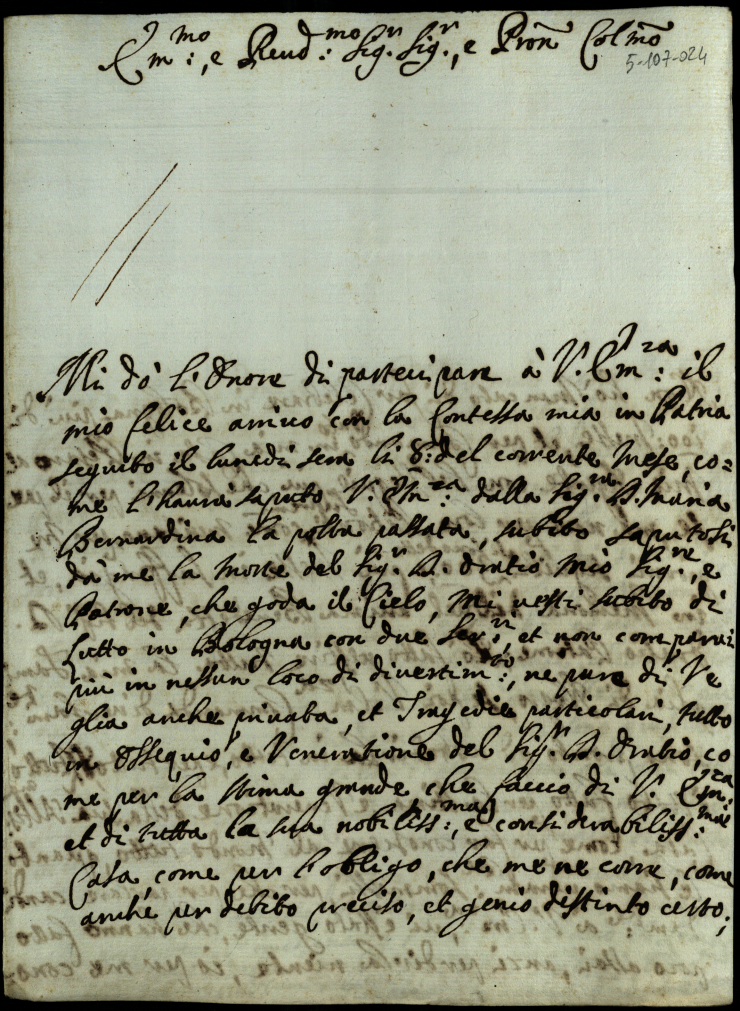 Em:mo, e Reud:mo Sig.r Sig.r, e Pron Colmo
5-107-024
Mi dò l'Onore di partecipare à V. Em:za il
mio felice arriuo con la Contessa mia in Patria
seguito il lunedi sera li 8: del corrente Mese, co=
me l'haurà saputo V. Em:za dalla Sig.ra D. Maria
Bernardina la posta passata, subito saputosi
dà me la Morte del Sig.r D. Oratio mio Sig.re, e
Patrone, che goda il Cielo, mi uesti subito di
Lutto in Bologna con due Ser:ri, et non comparui
più in nessun loco di diuertim:ti, ne pure di Ve
glia anche priuata, et Tragedie particolari, tutto
in Ossequio, e Veneratione del Sig.r D. Oratio, co
me per la stima grande che faccio di V. Em:za
et di tutta la sua nobiliss:ma, e considerabiliss:ma
Casa, come per l'obligo, che me ne corre, come
anche per debito preciso, et genio distinto certo;